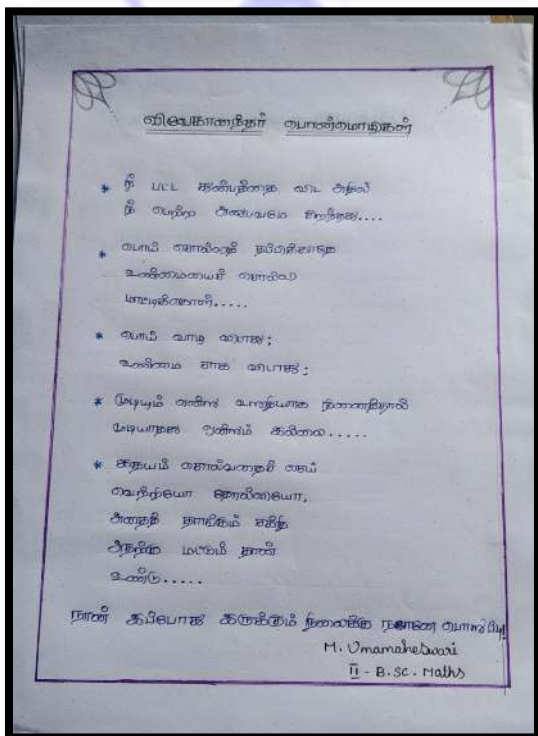 விவேகானந்தர் பொன்மொழிகள்
* நீ பட்ட துன்பத்தை விட அதில்
நீ பெற்ற அனுபவமே சிறந்தது....
* பொய் சொல்லித் தப்பிக்காதே
உண்மையைச் சொல்லி
மாட்டிக்கொள்.....
* பொய் வாழ விடாது;
உண்மை சாக விடாது;
* முடியும் என்று உறுதியாக நினைத்தால்
முடியாதது எதுவும் இல்லை.....
* இதயம் சொல்வதைச் செய்
வெற்றியோ தோல்வியோ,
அதைத் தாங்கும் சக்தி
அதற்கு மட்டும் தான்
உண்டு.....
நான் இப்போது இருக்கும் நிலைக்கு நானே பொறுப்பு!
M. Umamaheswari
II - B.SC. Maths